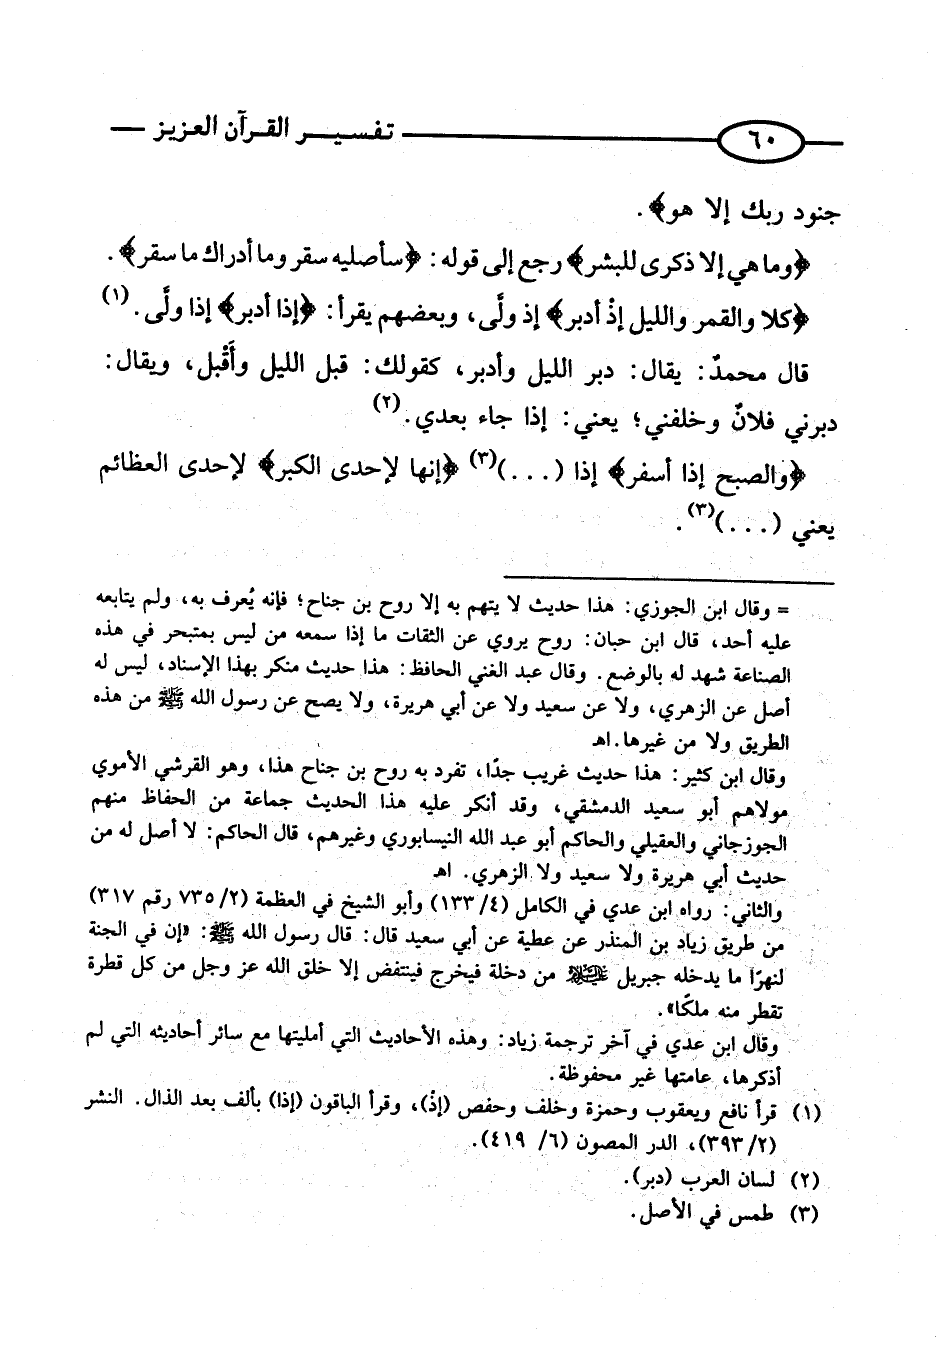 ٦٠ تفسير القرآن العزيز
جنود ربك إلا هو﴾.
﴿وما هي إلا ذكرى للبشر﴾ رجع إلى قوله: ﴿سأصليه سقر وما أدراك ما سقر﴾.
﴿كلا والقمر والليل إذْ أدبر﴾ إذ ولَّى، وبعضهم يقرأ: ﴿إذا أدبر﴾ إذا ولَّى.(١)
قال محمدٌ: يقال: دبر الليل وأدبر، كقولك: قبل الليل وأَقْبل، ويقال:
دبرني فلانٌ وخلفني؛ يعني: إذا جاء بعدي.(٢)
﴿والصبح إذا أسفر﴾ إذا (...)(٣) ﴿إنها لإحدى الكبر﴾ لإحدى العظائم
يعني (...)(٣).
= وقال ابن الجوزي: هذا حديث لا يتهم به إلا روح بن جناح؛ فإنه يُعرف به، ولم يتابعه
عليه أحد، قال ابن حبان: روح يروي عن الثقات ما إذا سمعه من ليس بمتبحر في هذه
الصناعة شهد له بالوضع. وقال عبد الغني الحافظ: هذا حديث منكر بهذا الإسناد، ليس له
أصل عن الزهري، ولا عن سعيد ولا عن أبي هريرة، ولا يصح عن رسول الله ﷺ من هذه
الطريق ولا من غيرها.اهـ
وقال ابن كثير: هذا حديث غريب جدًا، تفرد به روح بن جناح هذا، وهو القرشي الأموي
مولاهم أبو سعيد الدمشقي، وقد أنكر عليه هذا الحديث جماعة من الحفاظ منهم
الجوزجاني والعقيلي والحاكم أبو عبد الله النيسابوري وغيرهم، قال الحاكم: لا أصل له من
حديث أبي هريرة ولا سعيد ولا الزهري. اهـ
والثاني: رواه ابن عدي في الكامل (٤/ ١٣٣) وأبو الشيخ في العظمة (٢/ ٧٣٥ رقم ٣١٧)
من طريق زياد بن المنذر عن عطية عن أبي سعيد قال: قال رسول الله ﷺ: «إن في الجنة
لنهرًا ما يدخله جبريل عليه السلام من دخلة فيخرج فينتفض إلا خلق الله عز وجل من كل قطرة
تقطر منه ملكًا».
وقال ابن عدي في آخر ترجمة زياد: وهذه الأحاديث التي أمليتها مع سائر أحاديثه التي لم
أذكرها، عامتها غير محفوظة.
(١) قرأ نافع ويعقوب وحمزة وخلف وحفص (إذْ)، وقرأ الباقون (إذا) بألف بعد الذال. النشر
(٢/ ٣٩٣)، الدر المصون (٦/ ٤١٩).
(٢) لسان العرب (دبر).
(٣) طمس في الأصل.